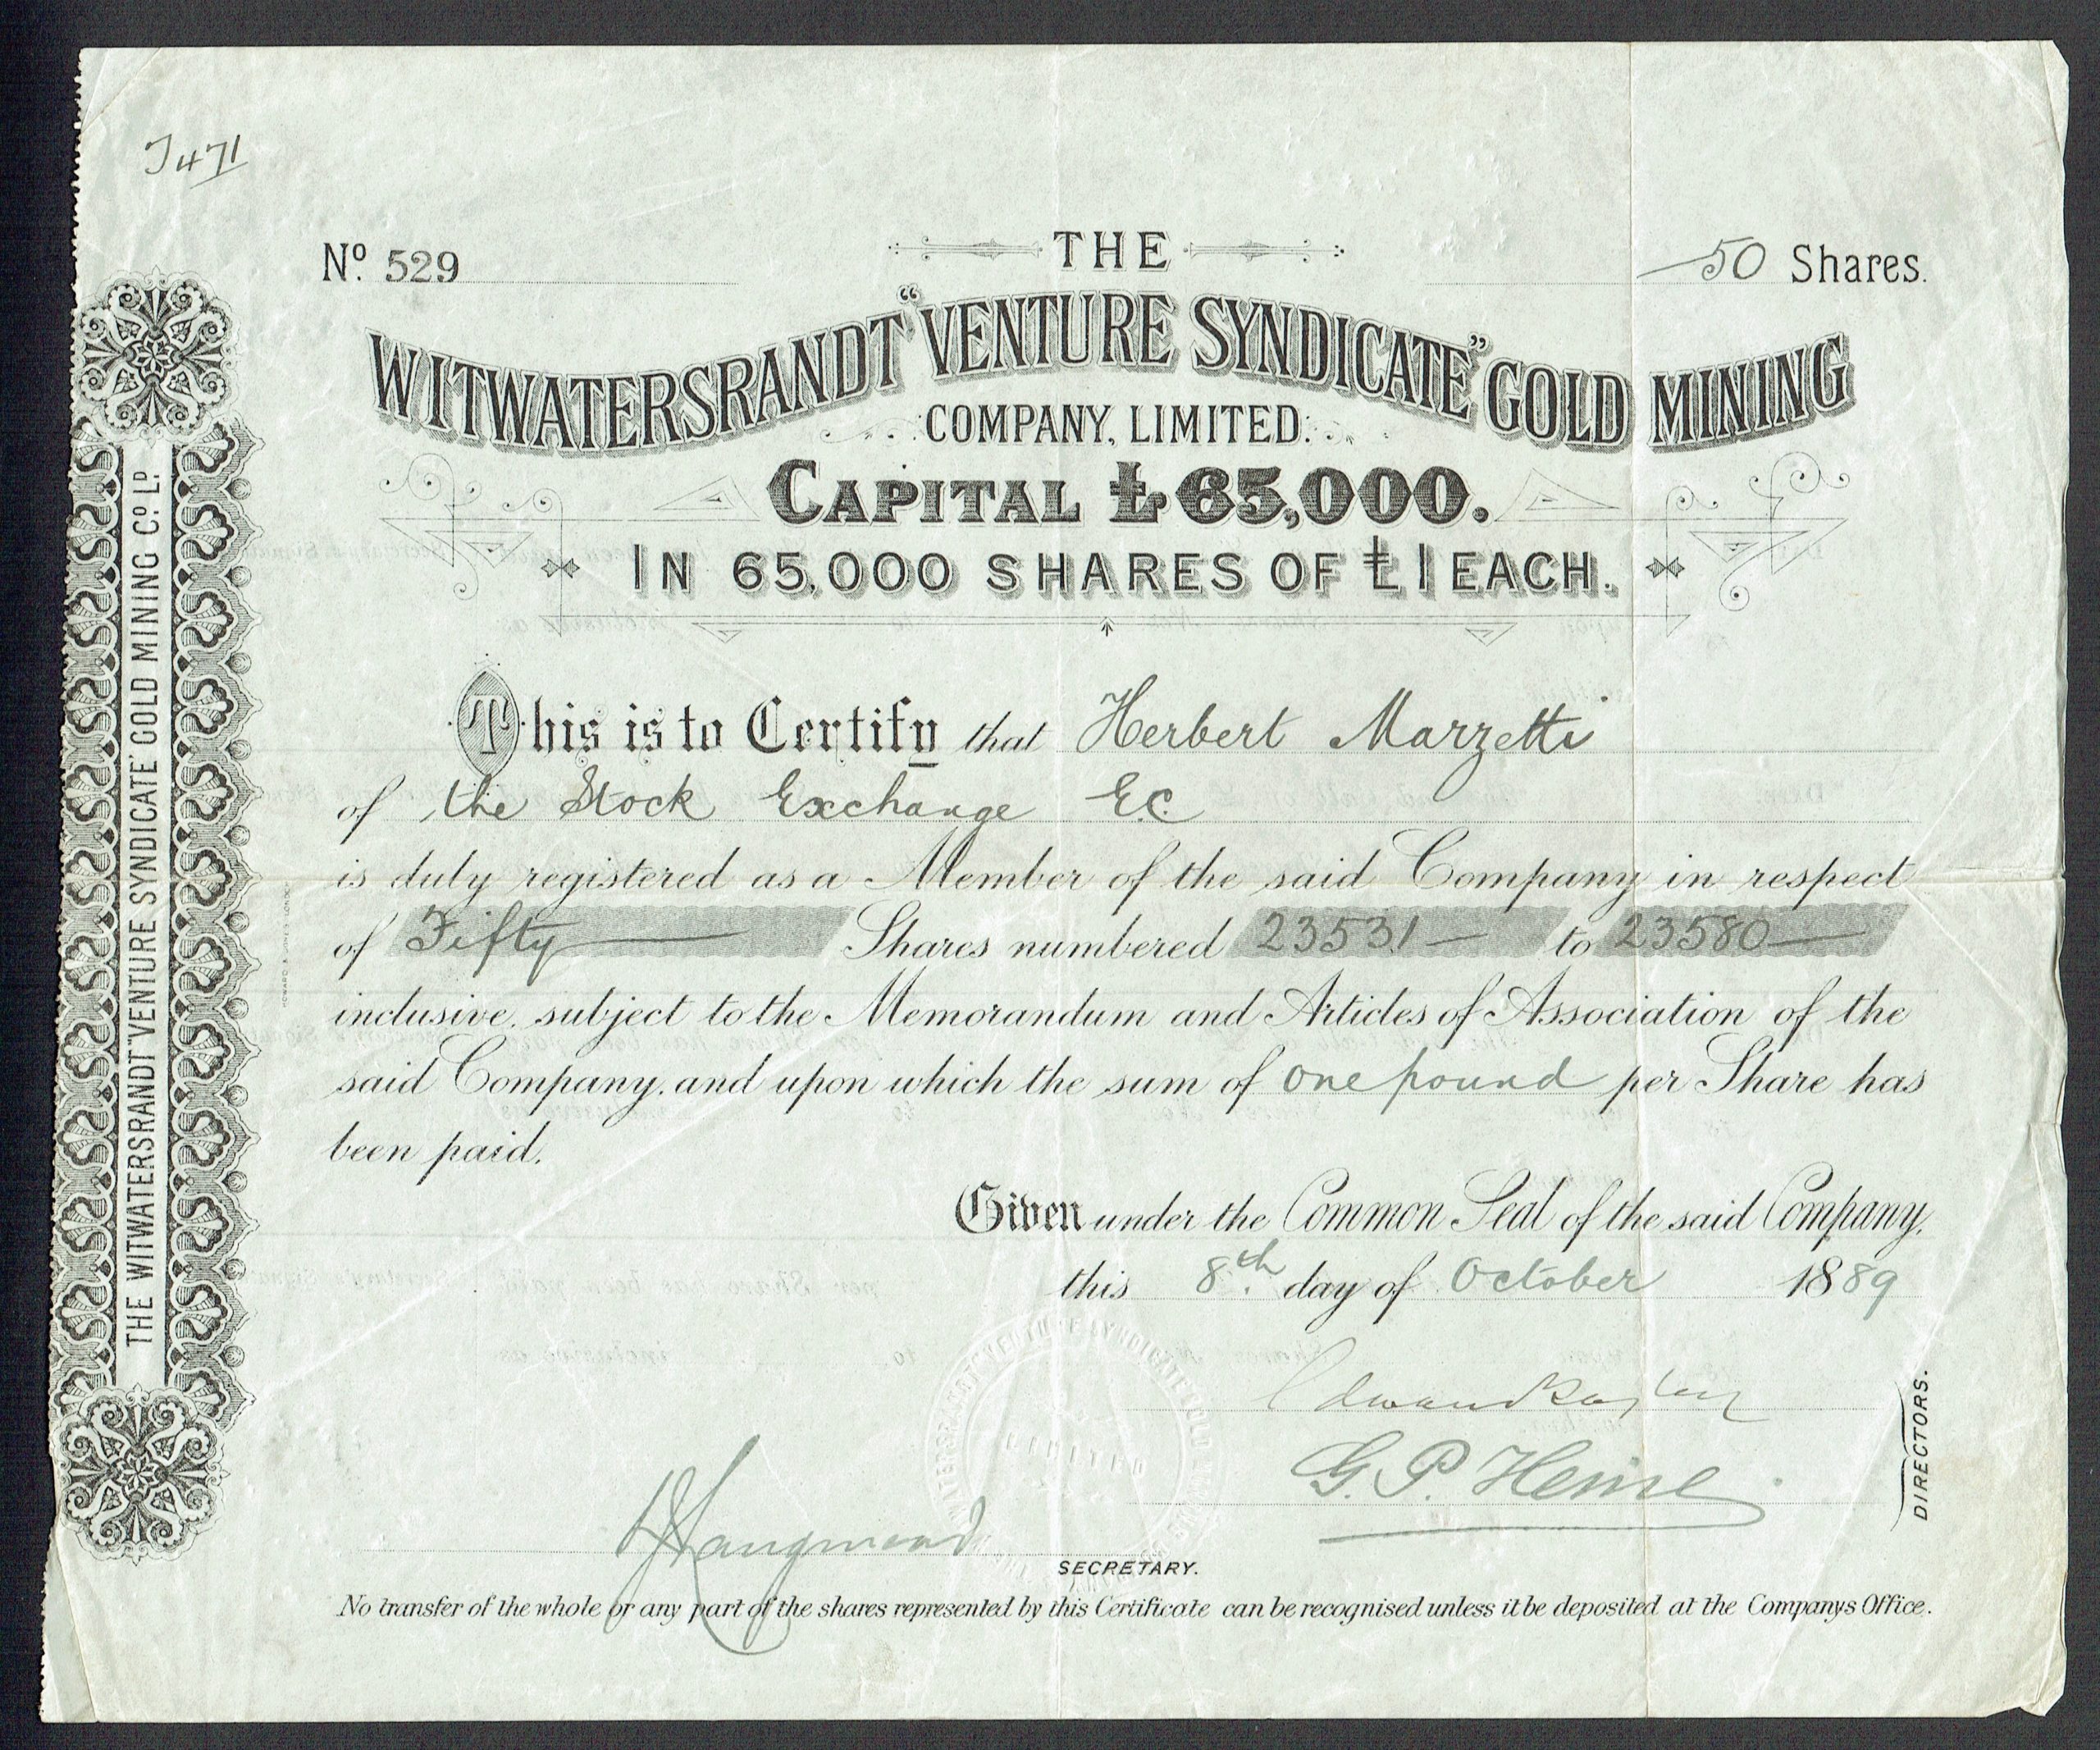 T471
No. 529
THE
50 Shares.
WITWATERSRANDT "VENTURE SYNDICATE" GOLD MINING
COMPANY, LIMITED.
CAPITAL £65,000.
IN 65,000 SHARES OF £1 EACH.
This is to Certify that Herbert Marzetti
of the Stock Exchange E.C.
is duly registered as a Member of the said Company in respect
of Fifty Shares numbered 23531 to 23580
inclusive, subject to the Memorandum and Articles of Association of the
said Company, and upon which the sum of one pound per Share has
been paid.
Given under the Common Seal of the said Company,
this 8th day of October 1889
G. P. Heine
DIRECTORS.
SECRETARY.
No transfer of the whole or any part of the shares represented by this Certificate can be recognised unless it be deposited at the Companys Office.
THE WITWATERSRANDT "VENTURE SYNDICATE" GOLD MINING Co. Ld.
LIMITED